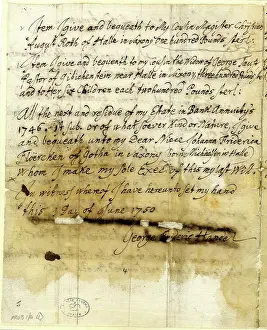 Item I give and bequeath to my Cousin Magister Christian
August Roth of Halle in Saxony one hundred Pounds sterl:
Item I give and bequeath to my Cousin the Widow of George Taust
Pastor of Giebichenstein near Halle in Saxony three hundred Pounds
and to her six Children each two hundred Pounds. sterl:
All the next and residue of my Estate in Bank Annuity's
1746. or of what soever Kind or Nature, I give
and bequeath unto my Dear Niece Johanna Friderica
Floerchen of Gotha in Saxony born Michaelsen in Halle
Whom I make my Sole Exec of this my last Will.
In witness Whereof I have hereunto set my hand
this 1 Day of June 1750
George Handel